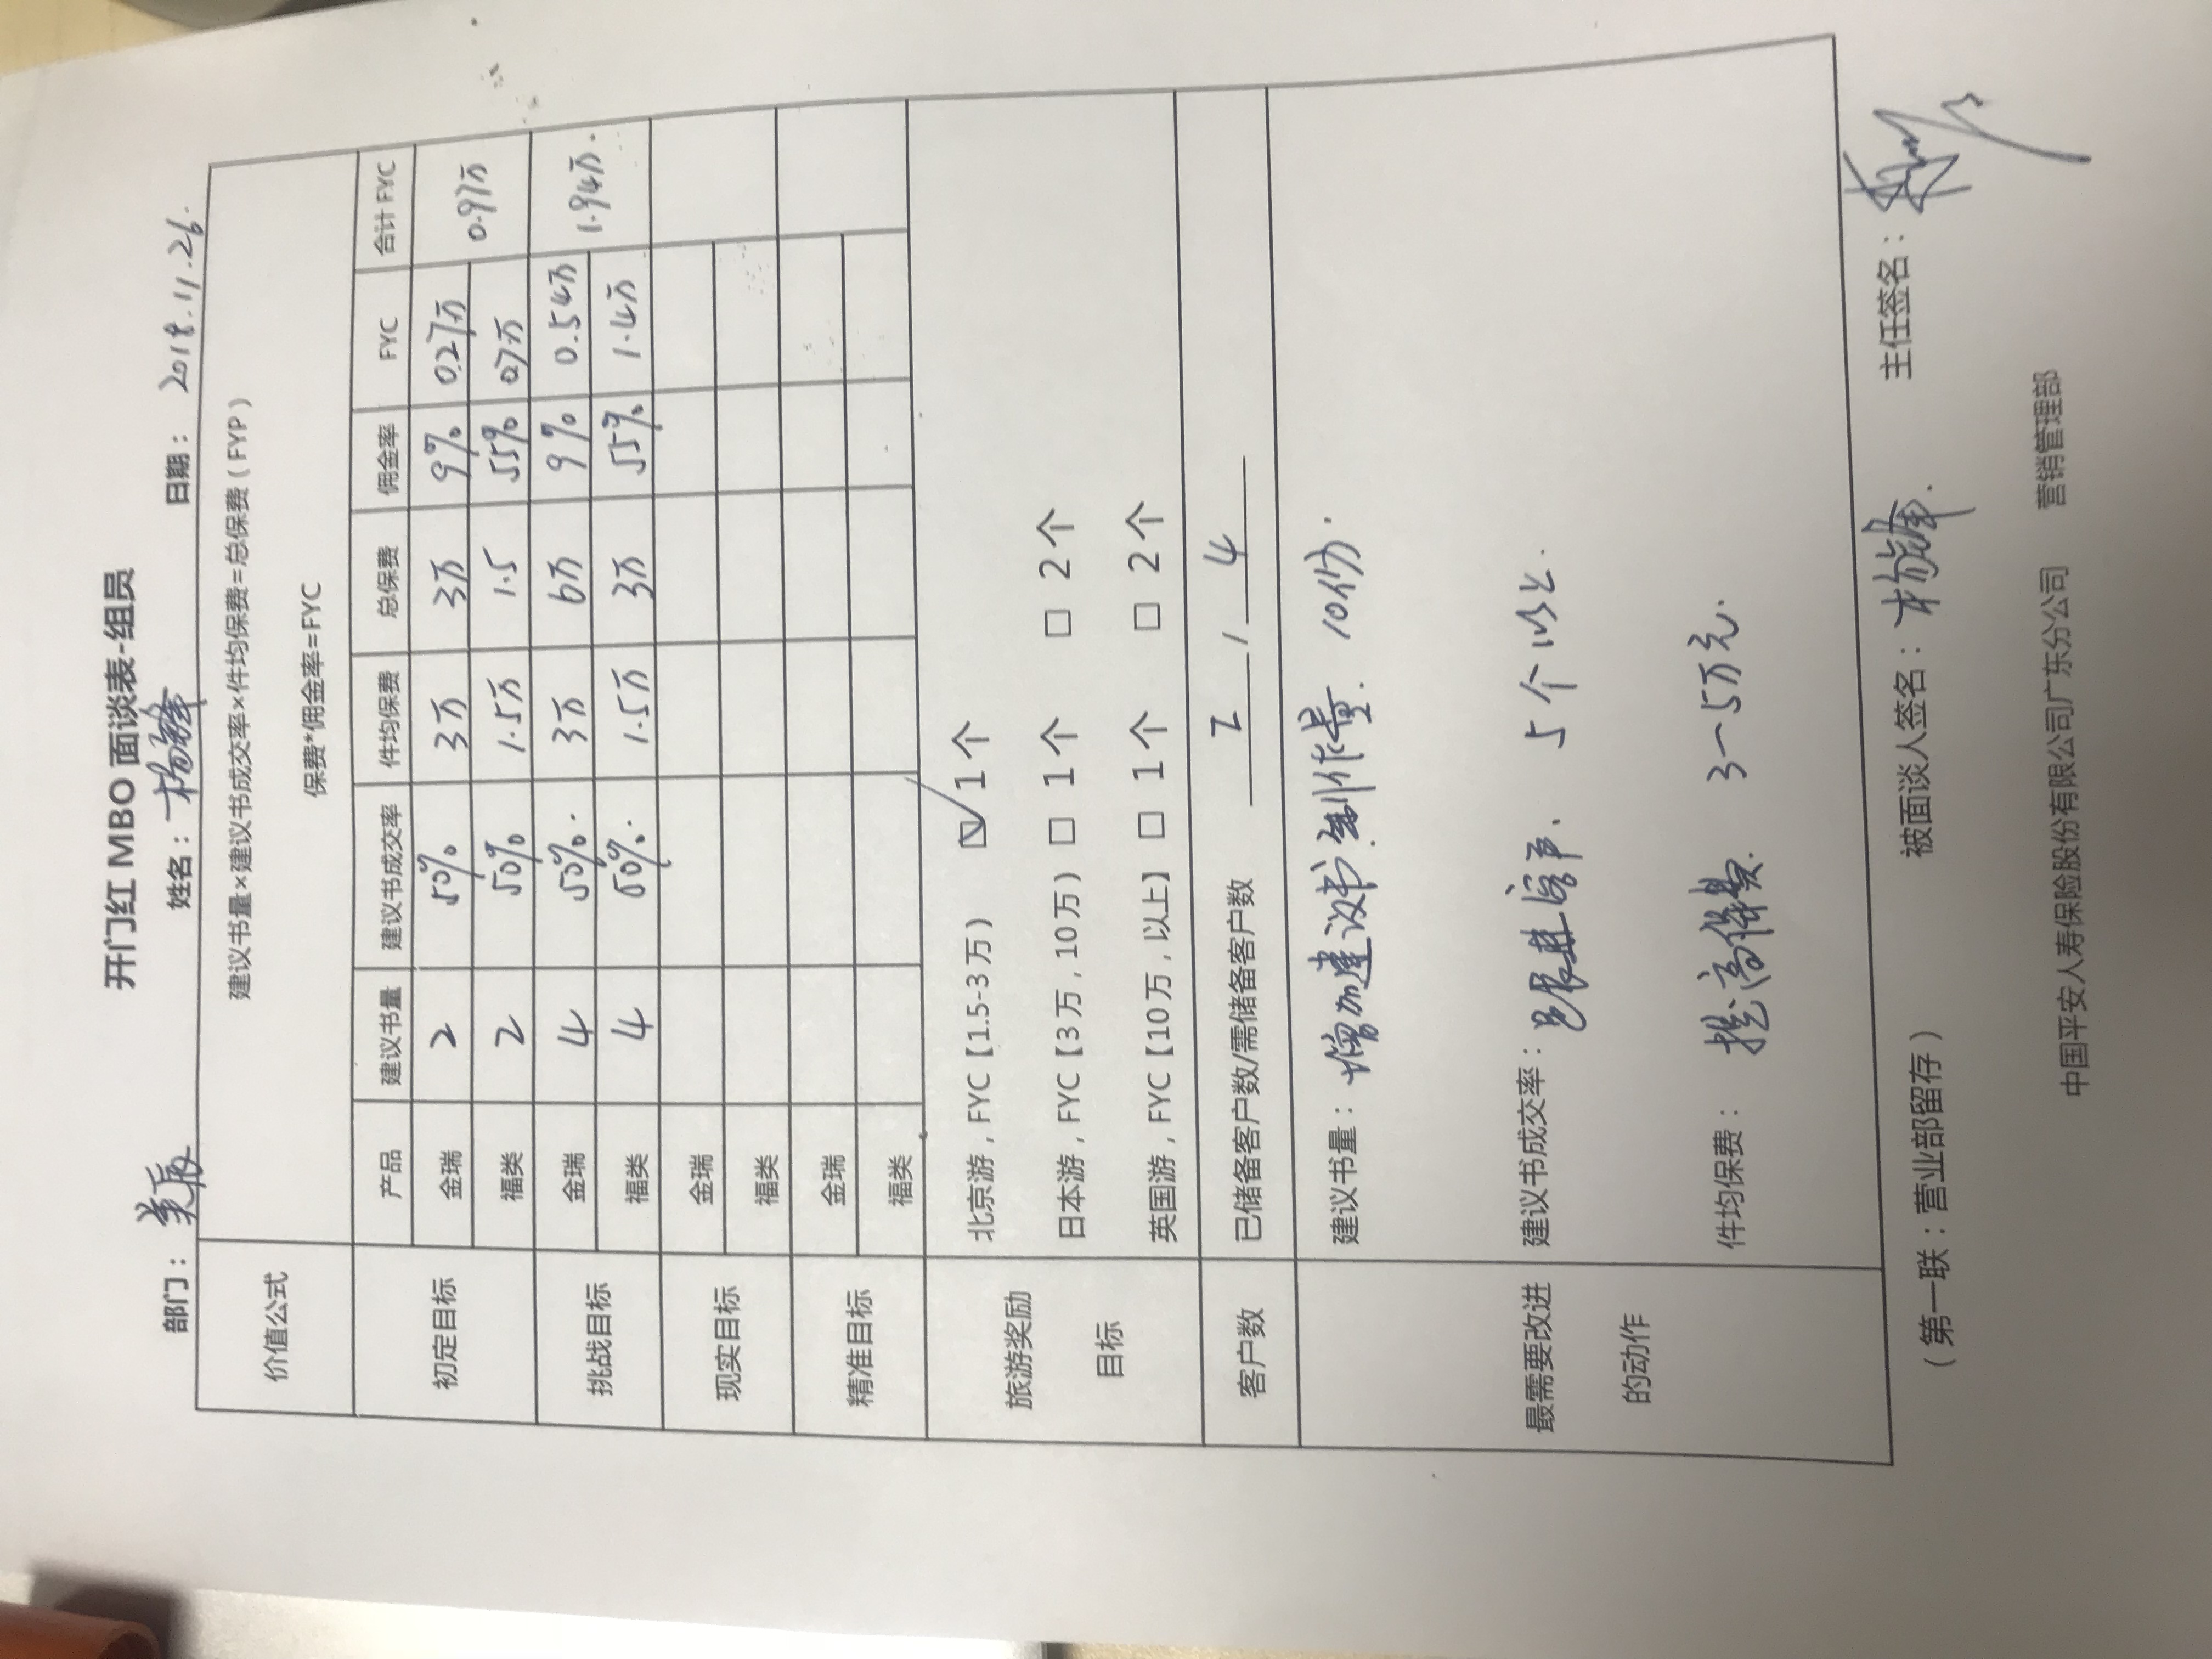 开门红 MBO 面谈表-组员
部门：美辰 姓名：杨锋 日期：2018.11.26.
价值公式 建议书量×建议书成交率×件均保费=总保费（FYP）
保费*佣金率=FYC
产品 建议书量 建议书成交率 件均保费 总保费 佣金率 FYC 合计 FYC
初定目标 金瑞 2 50% 3万 3万 9% 0.27万 0.97万
福类 2 50% 1.5万 1.5 55% 0.7万
挑战目标 金瑞 4 50%. 3万 6万 9% 0.54万 1.94万.
福类 4 50%. 1.5万 3万 55% 1.4万
现实目标 金瑞
福类
精准目标 金瑞
福类
旅游奖励目标 北京游，FYC【1.5-3 万） ☑ 1 个
日本游，FYC【3 万，10万） □ 1 个 □ 2 个
英国游，FYC【10 万，以上】 □ 1 个 □ 2 个
客户数 已储备客户数/需储备客户数 2 / 4
最需要改进的动作
建议书量：增加建议书制作量. 10份.
建议书成交率： 5个以上.
件均保费：提高保费. 3-5万元.
（第一联：营业部留存） 被面谈人签名：杨锋. 主任签名：
中国平安人寿保险股份有限公司广东分公司 营销管理部